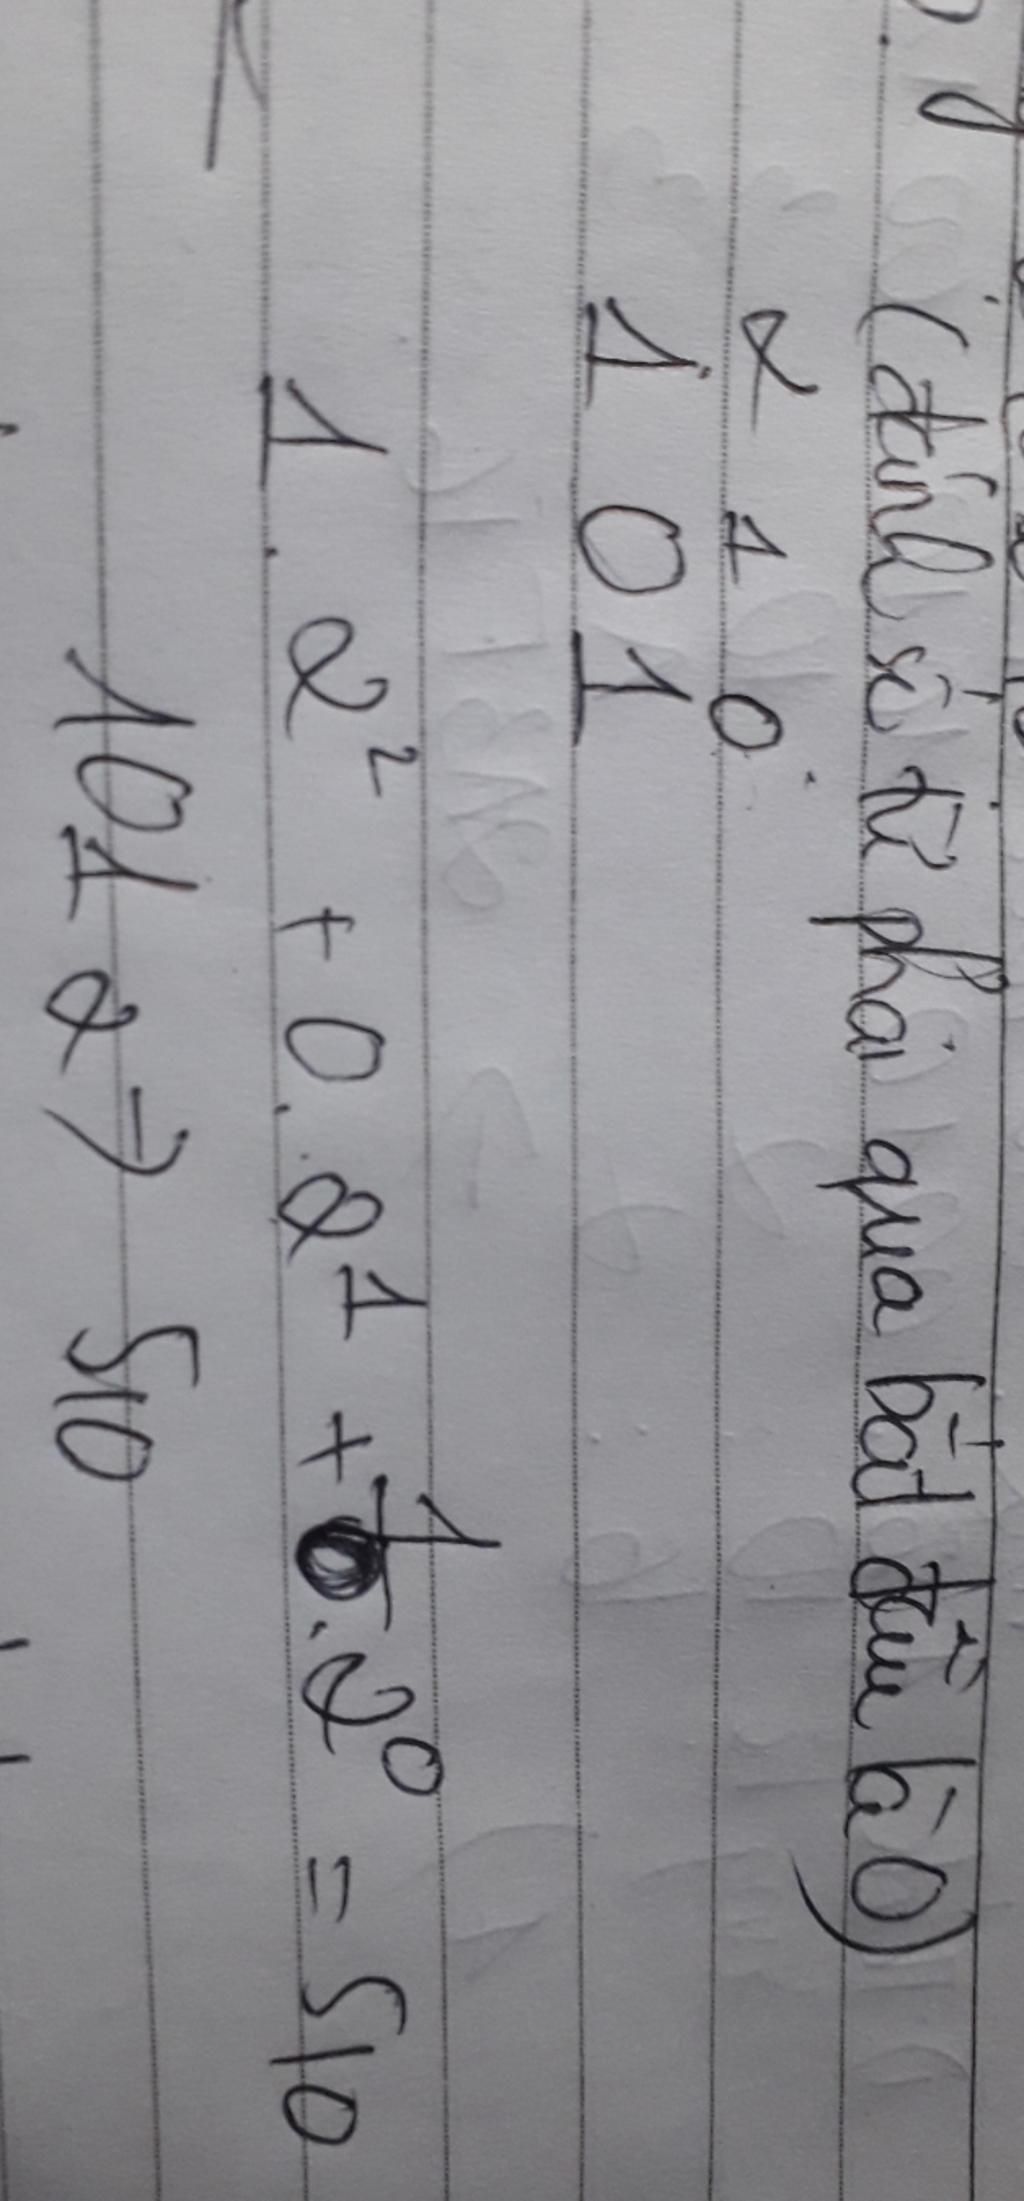 (đánh số từ phải qua bắt đầu là 0)
2 1 0
1 0 1
1. 2² + 0. 2¹ + 1. 2⁰ = 510
101 2 → 510